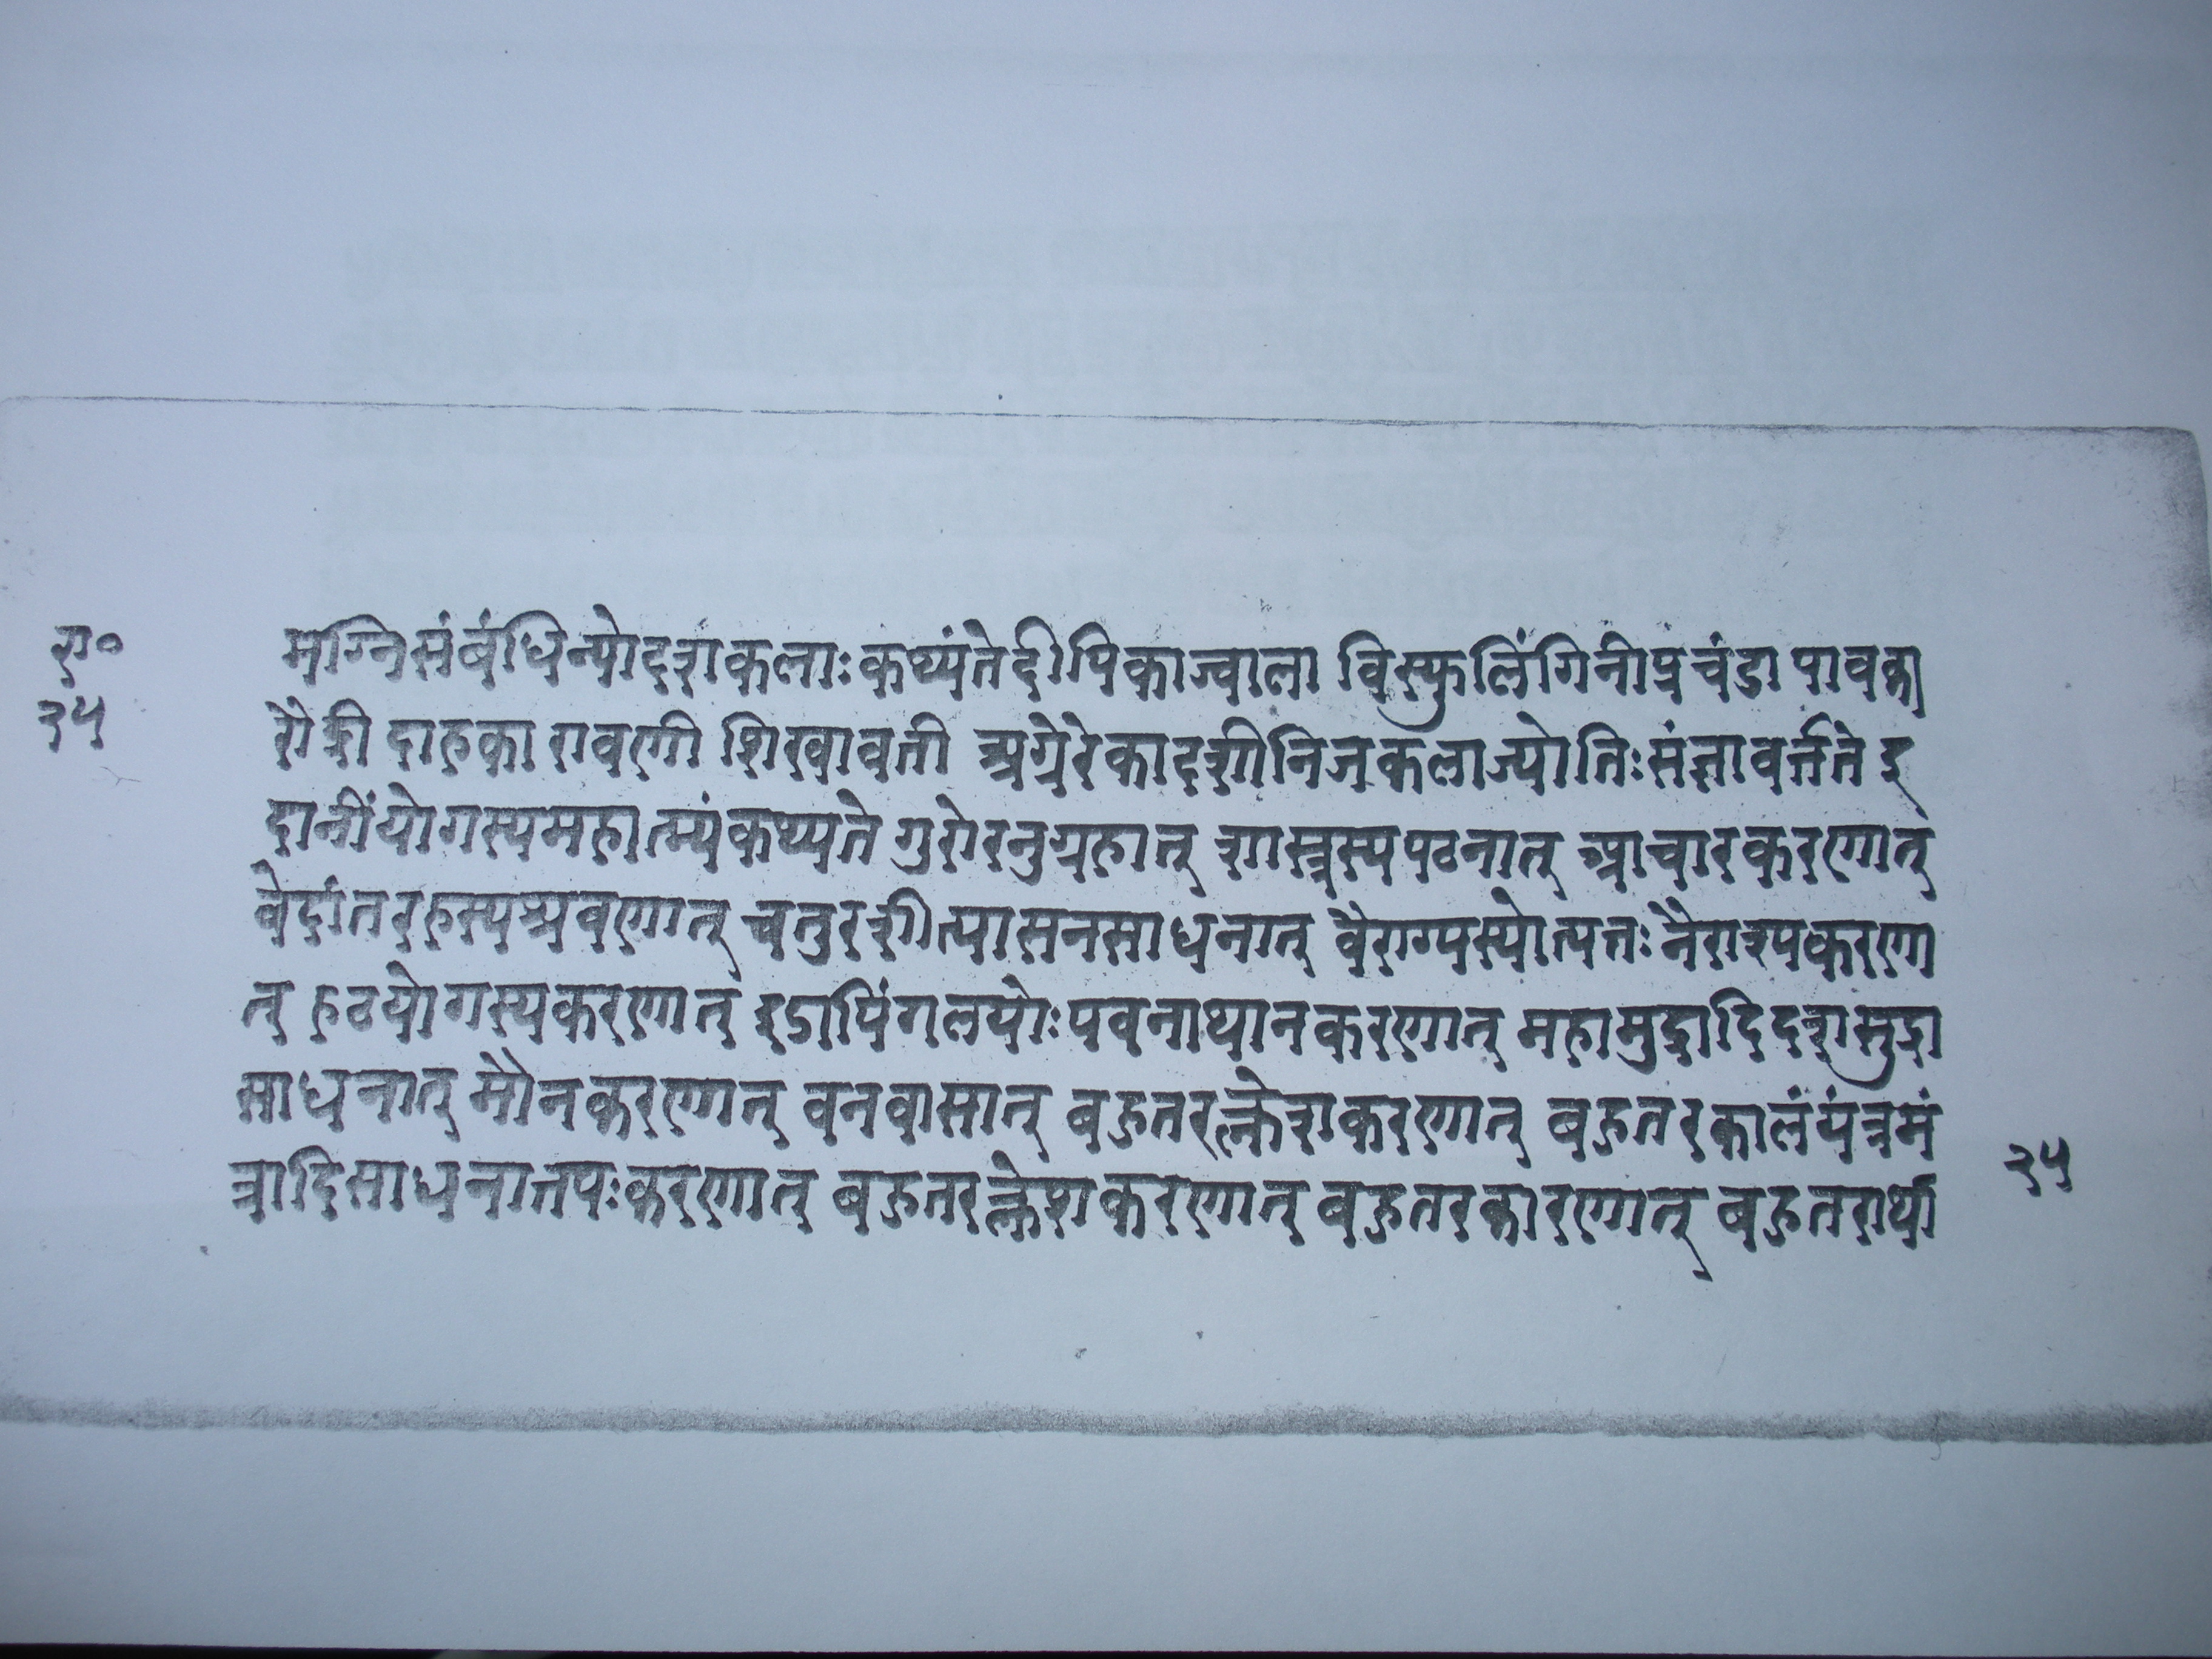 रा०
२५
मग्निसंबंधिन्योदशकलाः कथ्यंते दीपिकाज्वाला विस्फुलिंगिनीप्रचंडा पावका
रौद्री दाहका रावणी शिखावती अग्नेरेकादशीनिजकलाज्योतिःसंज्ञावर्त्तते इ
दानींयोगस्यमहात्म्यंकथ्यते गुरोरनुग्रहात् शास्त्रस्यपठनात् आचारकरणात्
वेदांतरहस्यश्रवणात् चतुरशीत्यासनसाधनात् वैराग्यस्योत्पत्तः नैराश्यकरणा
त् हठयोगस्यकरणात् इडापिंगलयोः पवनाथानकरणात् महामुद्रादिदशमुद्रा
साधनात् मौनकरणात् वनवासात् बहुतरक्लेशकरणात् बहुतरकालंयंत्रमं
त्रादिसाधनात्तपःकरणात् बहुतरक्लेशकरणात् बहुतरकारणात् बहुतरार्था
२५